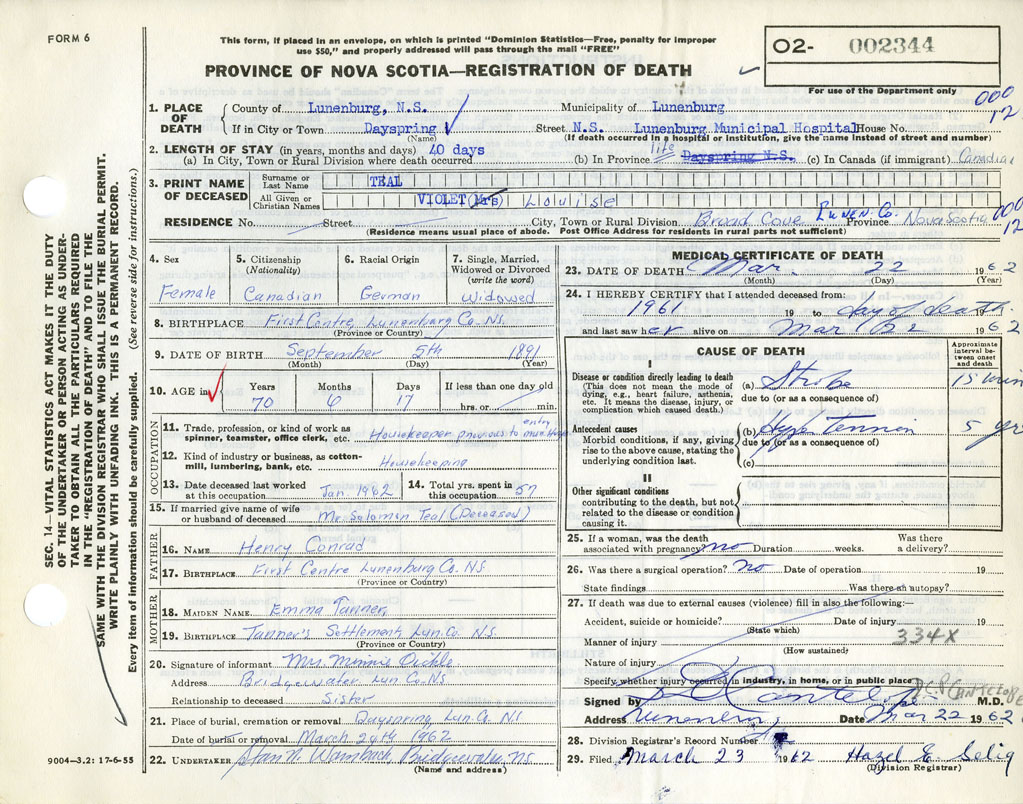 FORM 6
This form, if placed in an envelope, on which is printed "Dominion Statistics—Free, penalty for improper
use $50," and properly addressed will pass through the mail "FREE"
PROVINCE OF NOVA SCOTIA—REGISTRATION OF DEATH
O2- 002344
For use of the Department only
000
12
1. PLACE OF DEATH
County of Lunenburg, N.S. Municipality of Lunenburg
If in City or Town Dayspring Street N.S. Lunenburg Municipal Hospital House No.
(Name) (If death occurred in a hospital or institution, give the name instead of street and number)
2. LENGTH OF STAY (in years, months and days) 40 days life
(a) In City, Town or Rural Division where death occurred (b) In Province Dayspring N.S. (c) In Canada (if immigrant) Canadian
3. PRINT NAME OF DECEASED
Surname or Last Name TEAL
All Given or Christian Names VIOLET (Mrs) Louise
RESIDENCE No. Street City, Town or Rural Division Broad Cove Lunen. Co. Province Nova Scotia 000
12
(Residence means usual place of abode. Post Office Address for residents in rural parts not sufficient)
4. Sex
Female
5. Citizenship
(Nationality)
Canadian
6. Racial Origin
German
7. Single, Married,
Widowed or Divorced
(write the word)
Widowed
8. BIRTHPLACE First Centre Lunenburg Co. N.S.
(Province or Country)
9. DATE OF BIRTH September 5th 1891
(Month) (Day) (Year)
10. AGE in
Years Months Days If less than one day old
70 6 17 hrs. or min.
OCCUPATION
11. Trade, profession, or kind of work as
spinner, teamster, office clerk, etc. Housekeeper previous to entry
12. Kind of industry or business, as cotton-
mill, lumbering, bank, etc. Housekeeping
13. Date deceased last worked
at this occupation Jan. 1962
14. Total yrs. spent in
this occupation 57
15. If married give name of wife
or husband of deceased Mr. Solomon Teal (Deceased)
FATHER
16. NAME Henry Conrad
17. BIRTHPLACE First Centre Lunenburg Co. N.S
(Province or Country)
MOTHER
18. MAIDEN NAME Emma Tanner
19. BIRTHPLACE Tanner's Settlement Lun. Co. N.S.
(Province or Country)
20. Signature of informant Mrs Minnie Oickle
Address Bridgewater Lun Co. N.S
Relationship to deceased Sister
21. Place of burial, cremation or removal Dayspring, Lun. Co. N.S
Date of burial or removal March 24th 1962
22. UNDERTAKER Stan N. Wambach Bridgewater N.S.
(Name and address)
MEDICAL CERTIFICATE OF DEATH
23. DATE OF DEATH Mar. 22 1962
(Month) (Day) (Year)
24. I HEREBY CERTIFY that I attended deceased from:
1961 19 to day of death
and last saw her alive on Mar 22 1962
CAUSE OF DEATH
Approximate interval between onset and death
I
Disease or condition directly leading to death
(This does not mean the mode of
dying, e.g., heart failure, asthenia,
etc. It means the disease, injury, or
complication which caused death.)
(a) Stroke 15 min
due to (or as a consequence of)
Antecedent causes
Morbid conditions, if any, giving
rise to the above cause, stating the
underlying condition last.
(b) Hypertension 5 yr
due to (or as a consequence of)
(c)
II
Other significant conditions
contributing to the death, but not
related to the disease or condition
causing it.
25. If a woman, was the death
associated with pregnancy? no Duration weeks. Was there
a delivery?
26. Was there a surgical operation? no Date of operation 19
State findings Was there an autopsy?
27. If death was due to external causes (violence) fill in also the following:—
Accident, suicide or homicide? Date of injury 19
(State which)
Manner of injury 334X
(How sustained)
Nature of injury
Specify whether injury occurred in industry, in home, or in public place
Signed by Cantelope M.D.
Address Lunenburg Date Mar 22 1962
28. Division Registrar's Record Number
29. Filed March 23 1962 Hazel E Selig
(Division Registrar)
SEC. 14—VITAL STATISTICS ACT MAKES IT THE DUTY
OF THE UNDERTAKER OR PERSON ACTING AS UNDER-
TAKER TO OBTAIN ALL THE PARTICULARS REQUIRED
IN THE "REGISTRATION OF DEATH" AND TO FILE THE
SAME WITH THE DIVISION REGISTRAR WHO SHALL ISSUE THE BURIAL PERMIT.
WRITE PLAINLY WITH UNFADING INK. THIS IS A PERMANENT RECORD.
Every item of information should be carefully supplied. (See reverse side for instructions.)
9004—3.2: 17-6-55